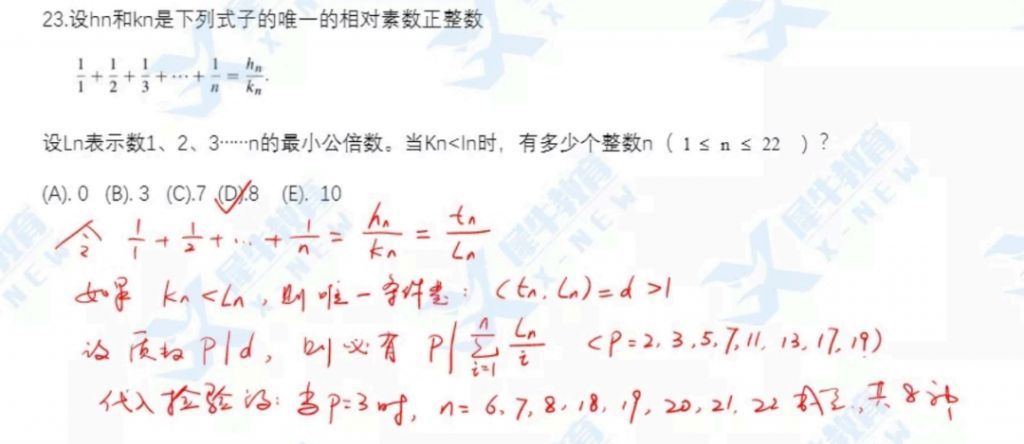 23.设hn和kn是下列式子的唯一的相对素数正整数
1/1 + 1/2 + 1/3 + ⋯ + 1/n = hn/kn.
设Ln表示数1、2、3······n的最小公倍数。当Kn<ln时，有多少个整数n（ 1 ≤ n ≤ 22 ）?
(A). 0 (B). 3 (C).7 (D).8 (E). 10
令 1/1 + 1/2 + ... + 1/n = hn/kn = tn/Ln
如果 kn<Ln, 则唯一条件是: (tn, Ln)=d >1
设质数 P|d, 则必有 P| n∑i=1 Ln/i (P=2,3,5,7,11,13,17,19)
代入检验得: 当P=3时, n=6,7,8,18,19,20,21,22 成立, 共8种
犀牛教育
X-NEW